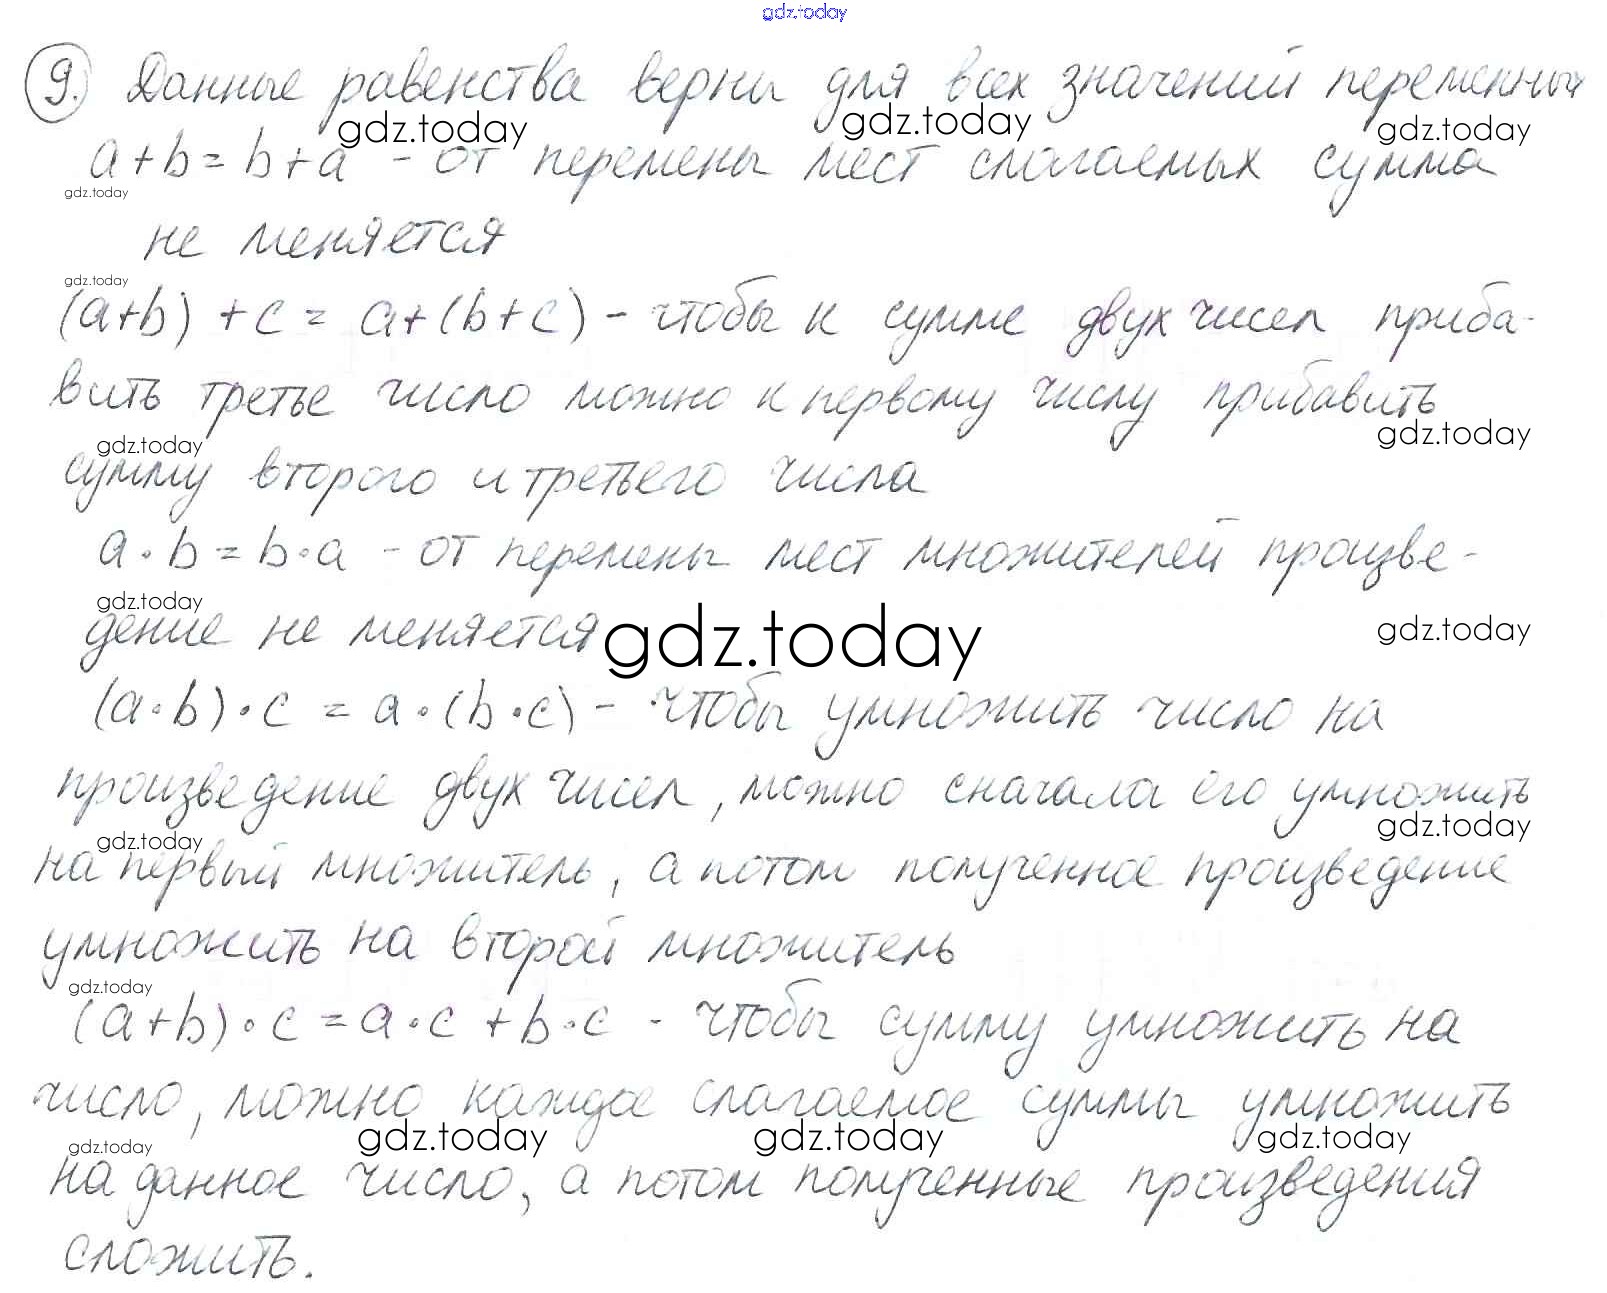 gdz.today
9. Данные равенства верны для всех значений переменных
gdz.today gdz.today gdz.today
a+b=b+a - от перемены мест слагаемых сумма
gdz.today
не меняется
gdz.today
(a+b)+c = a+(b+c) - чтобы к сумме двух чисел приба-
вить третье число можно к первому числу прибавить
gdz.today gdz.today
сумму второго и третьего числа
a·b=b·a - от перемены мест множителей произве-
gdz.today
дение не меняется
gdz.today gdz.today
(a·b)·c = a·(b·c) - чтобы умножить число на
произведение двух чисел, можно сначала его умножить
gdz.today gdz.today
на первый множитель, а потом полученное произведение
умножить на второй множитель
gdz.today
(a+b)·c=a·c+b·c - чтобы сумму умножить на
число, можно каждое слагаемое суммы умножить
gdz.today gdz.today gdz.today gdz.today
на данное число, а потом полученные произведения
сложить.